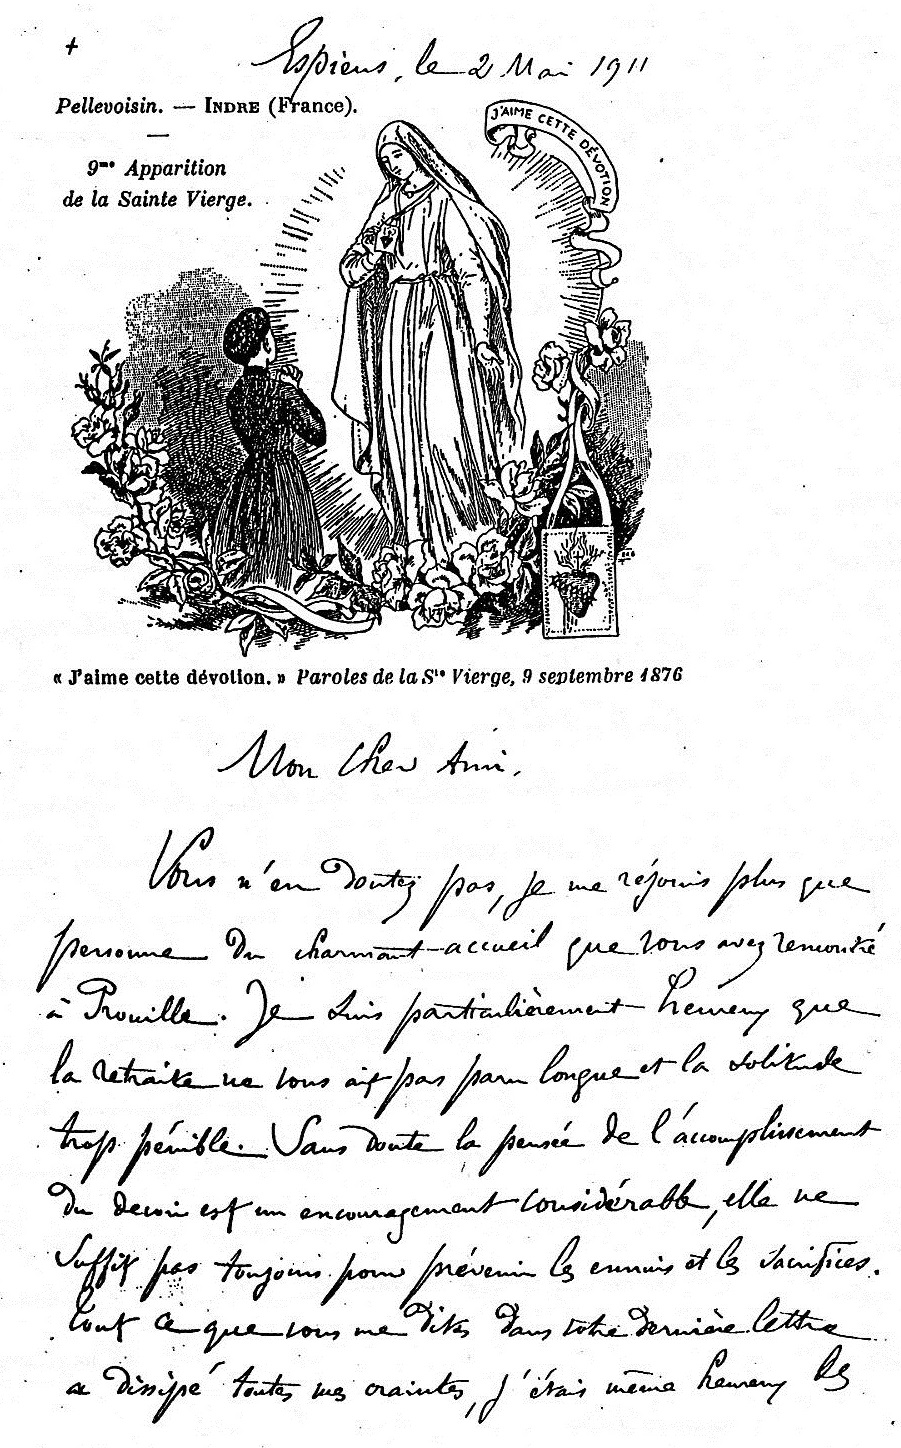 +
Espiens, le 2 Mai 1911
Pellevoisin. — INDRE (France).
9me Apparition
de la Sainte Vierge.
J'AIME CETTE DÉVOTION
« J'aime cette dévotion. » Paroles de la Ste Vierge, 9 septembre 1876
Mon Cher Ami,
Vous n'en doutez pas, je me réjouis plus que
personne du charmant accueil que vous avez rencontré
à Prouille. Je suis particulièrement heureux que
la retraite ne vous ait pas paru longue et la solitude
trop pénible. Sans doute la pensée de l'accomplissement
du devoir est un encouragement considérable, elle ne
suffit pas toujours pour prévenir les ennuis et les sacrifices.
Tout ce que vous me dites dans votre dernière lettre
a dissipé toutes mes craintes, j'étais même heureux les